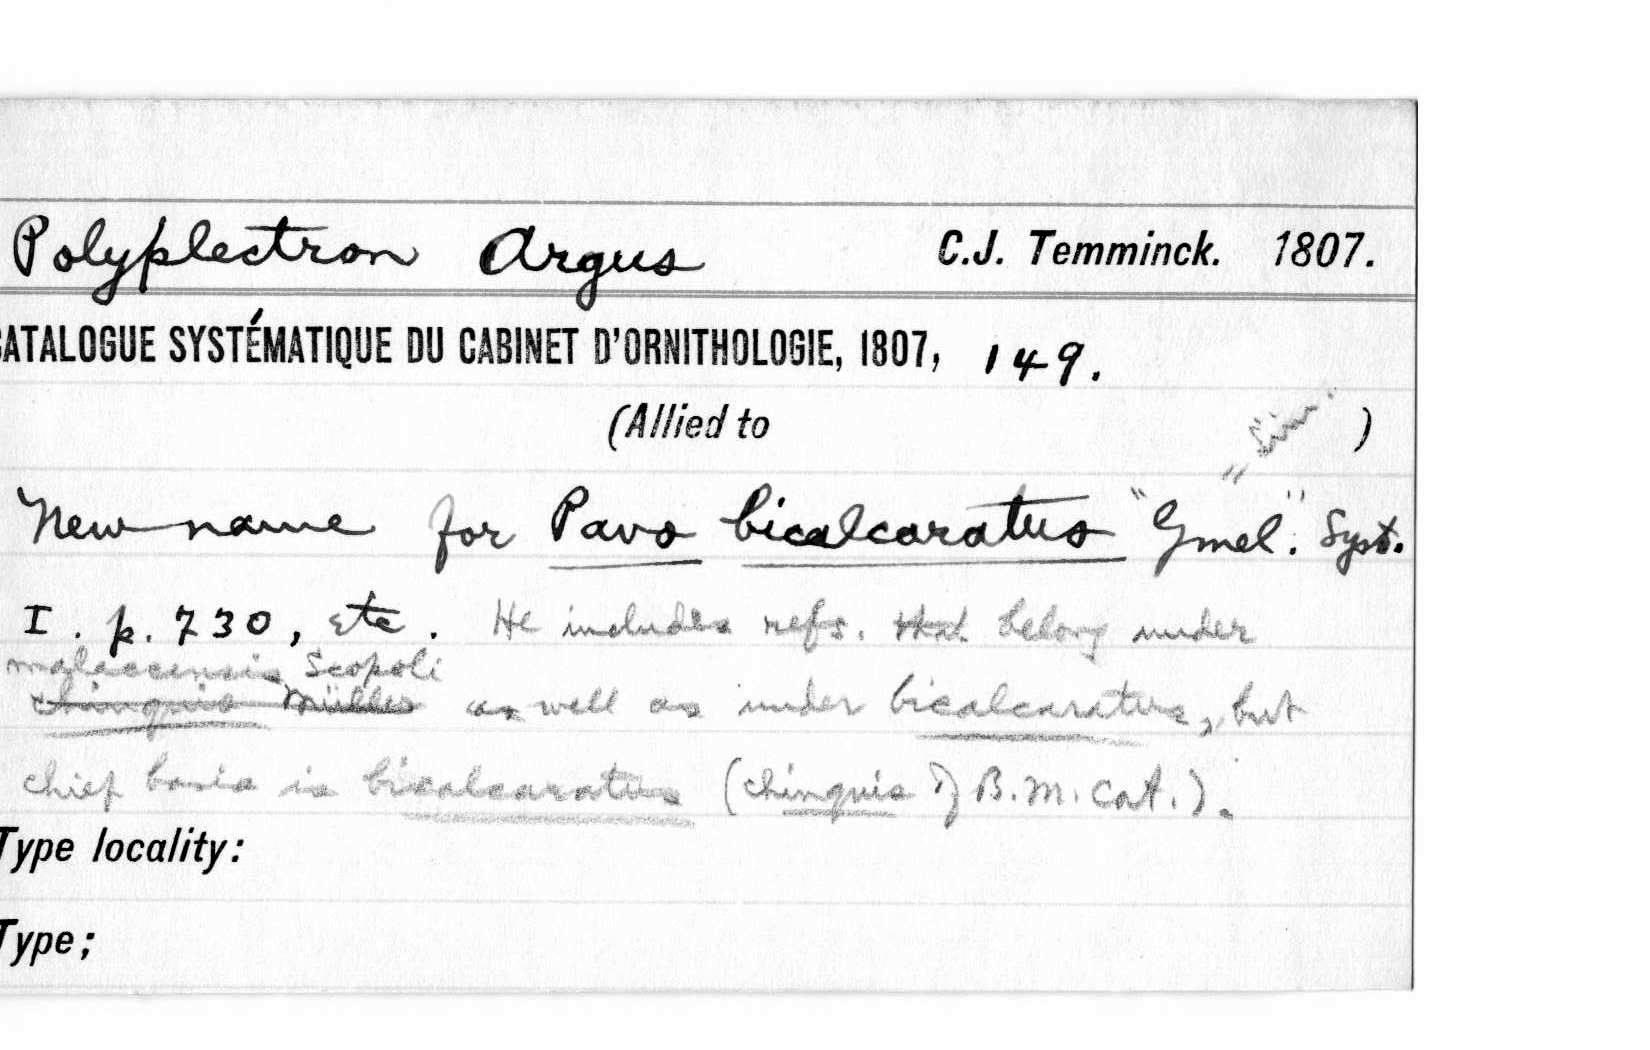 Polyplectron Argus C.J. Temminck. 1807.
CATALOGUE SYSTÉMATIQUE DU CABINET D'ORNITHOLOGIE, 1807, 149.
(Allied to )
"Linn."
New name for Pavo bicalcaratus "Gmel." Syst.
I. p. 730, etc. He includes refs. that belong under
malaccensis Scopoli
chinquis Müller as well as under bicalcaratus, but
chief basis is bicalcaratus (chinquis of B.M. Cat.).
Type locality:
Type;